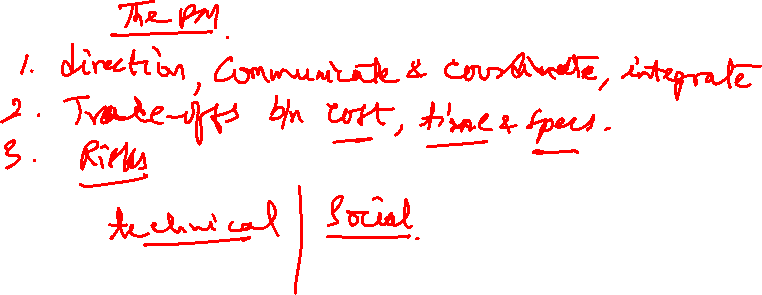 The PM
1. direction, Communicate & coordinate, integrate
2. Trade-offs b/n cost, time & specs.
3. Risks
technical | Social.